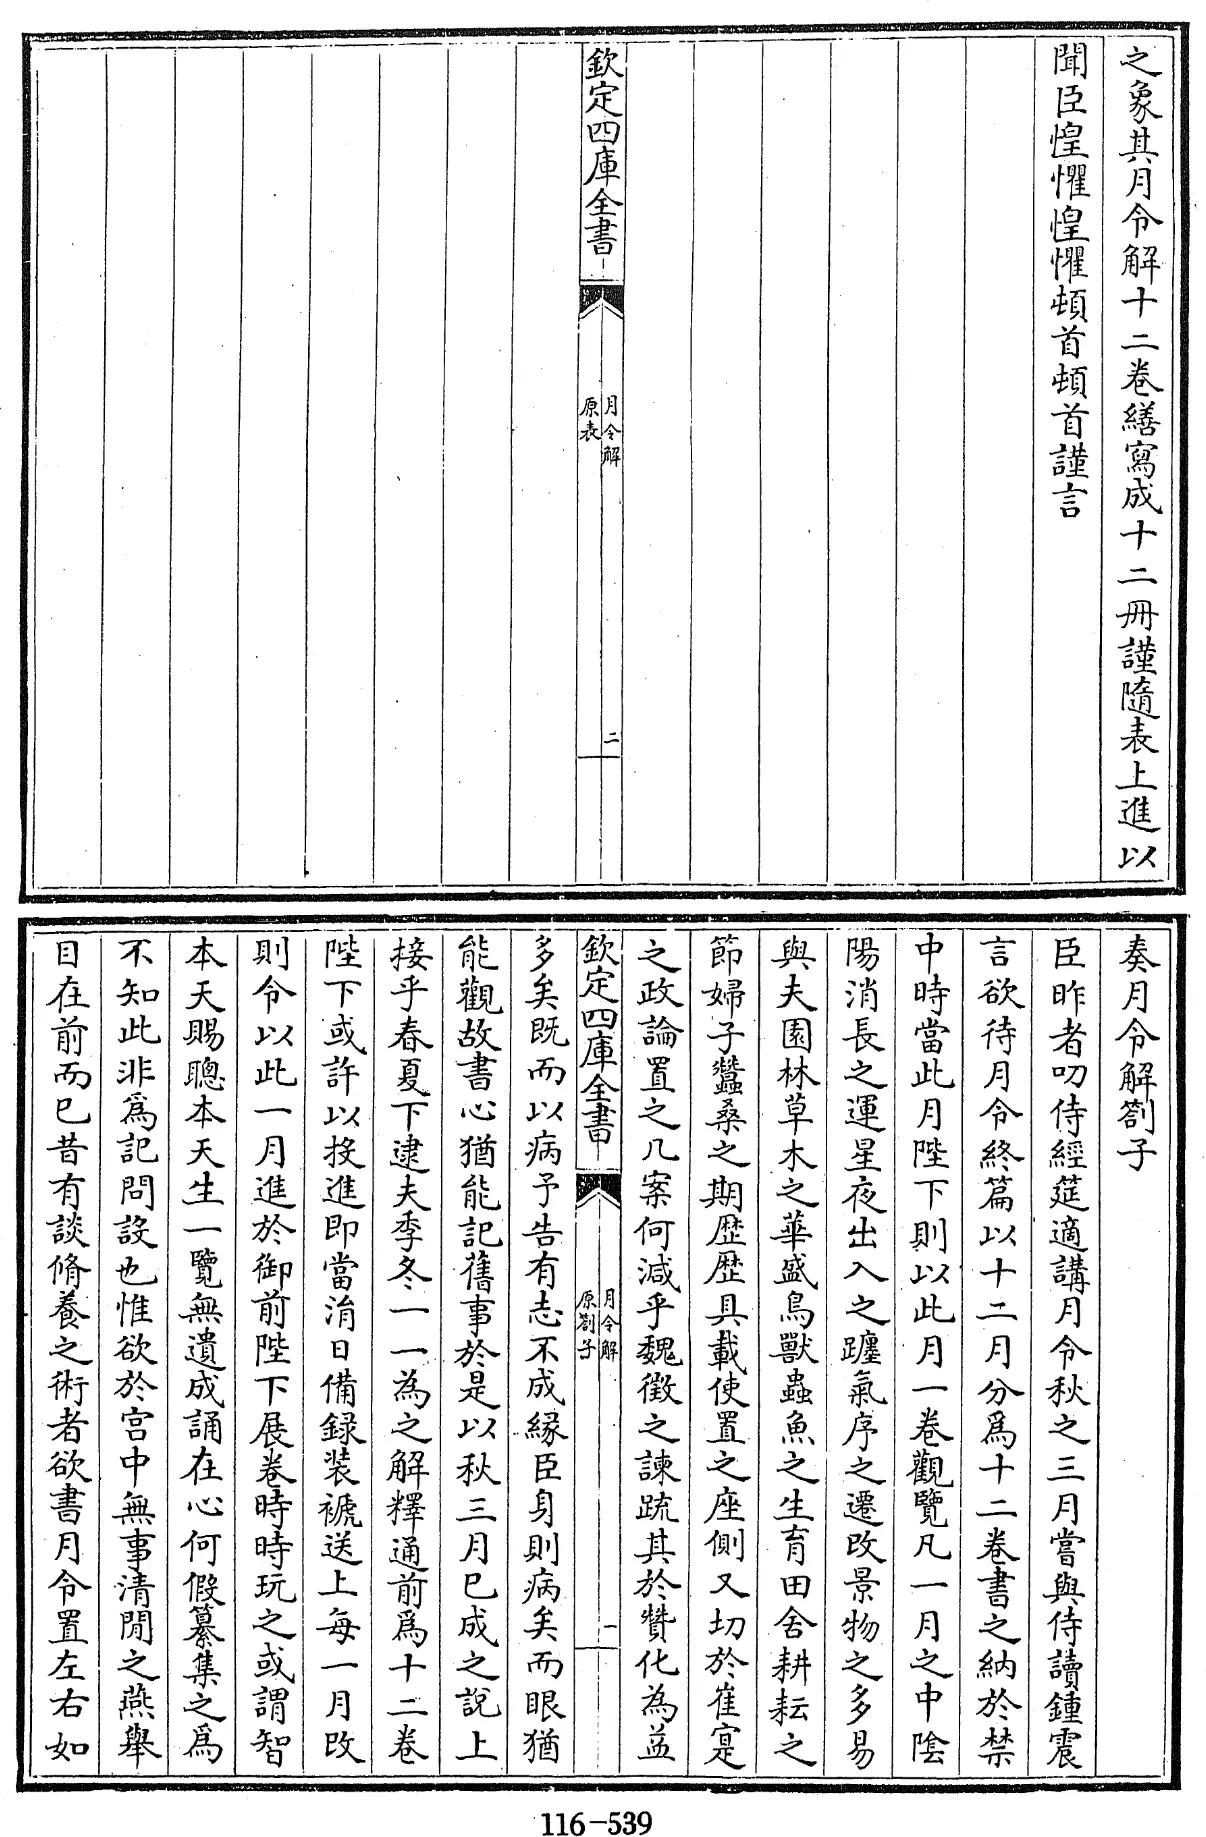 之象其月令解十二卷繕寫成十二冊謹隨表上進以
聞臣惶懼惶懼頓首頓首謹言
欽定四庫全書
月令解
原表
二
奏月令解劄子
臣昨者叨侍經筵適講月令秋之三月嘗與侍讀鍾震
言欲待月令終篇以十二月分爲十二卷書之納於禁
中時當此月陛下則以此月一卷觀覽凡一月之中陰
陽消長之運星夜出入之躔氣序之遷改景物之多易
與夫園林草木之華盛鳥獸蟲魚之生育田舍耕耘之
節婦子蠶桑之期歷歷具載使置之座側又切於崔寔
之政論置之几案何減乎魏徵之諫疏其於贊化為益
欽定四庫全書
月令解
原劄子
一
多矣既而以病予告有志不成緣臣身則病矣而眼猶
能觀故書心猶能記舊事於是以秋三月已成之說上
接乎春夏下逮夫季冬一一為之解釋通前爲十二卷
陛下或許以投進即當涓日備録装褫送上每一月改
則令以此一月進於御前陛下展卷時時玩之或謂智
本天賜聰本天生一覽無遺成誦在心何假纂集之爲
不知此非爲記問設也惟欲於宫中無事清閒之燕舉
目在前而已昔有談脩養之術者欲書月令置左右如
116-539